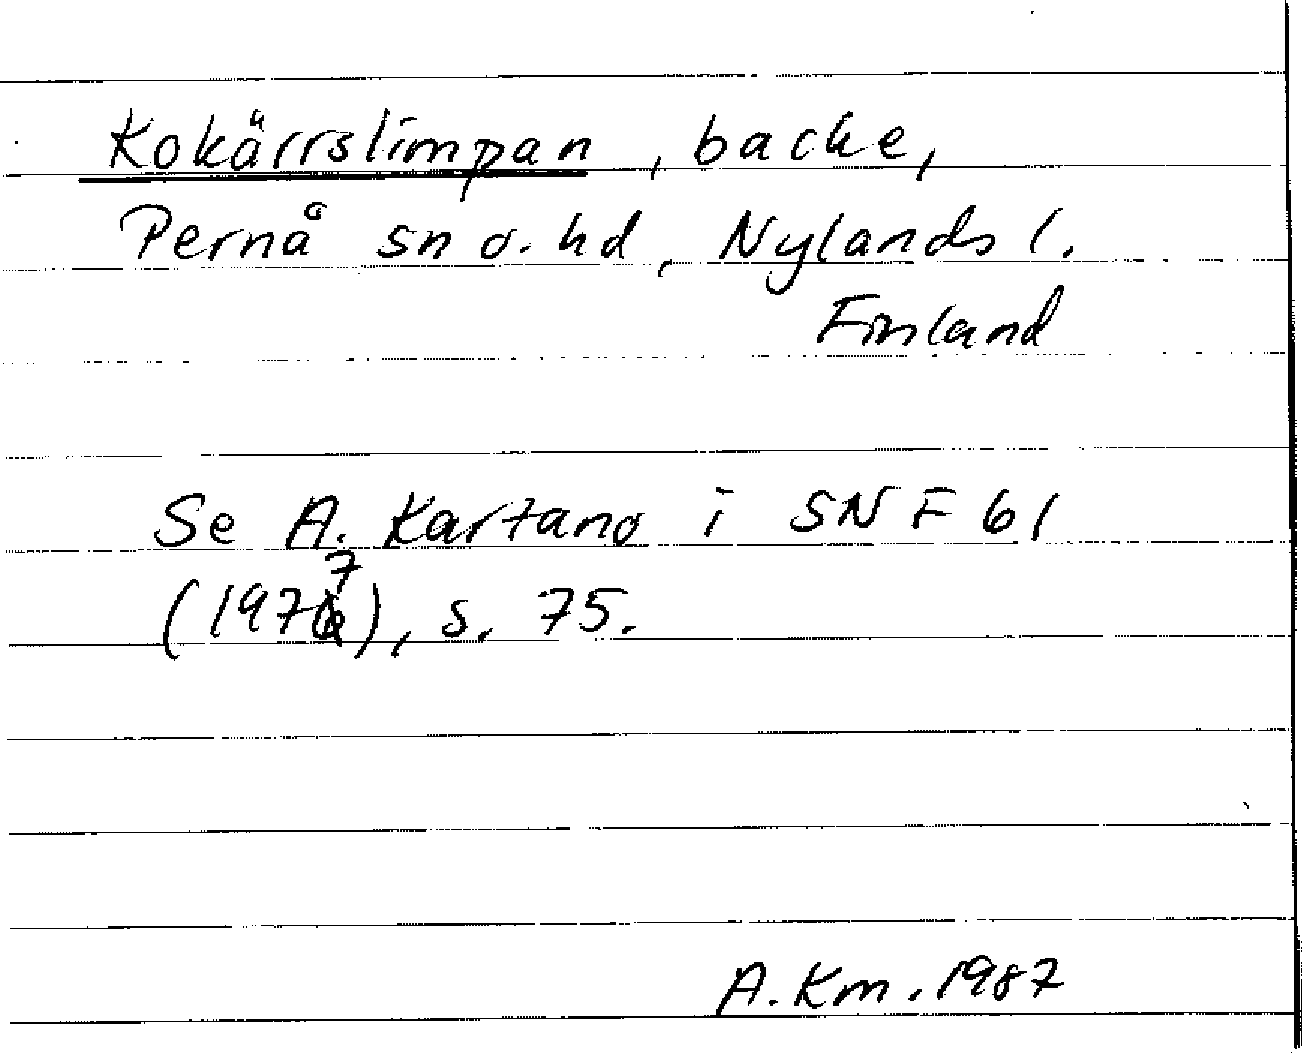 Kokärrslimpan, backe,
Pernå sn o. hd, Nylands l.
Finland
Se A. Kartano i SNF 61
(1977), s. 75.
A. Km. 1987